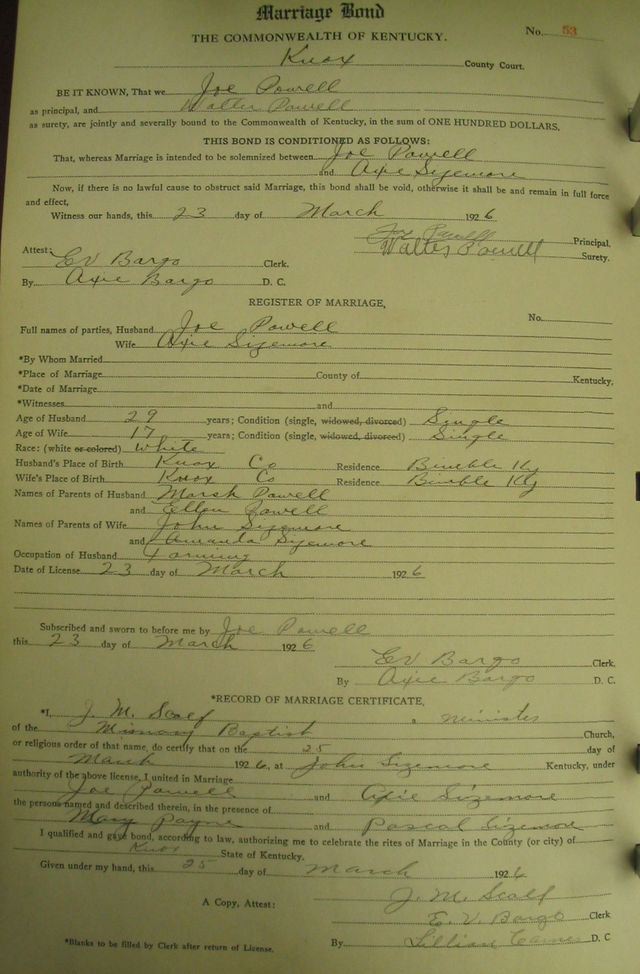 Marriage Bond
THE COMMONWEALTH OF KENTUCKY.
No. 53
Knox County Court.
BE IT KNOWN, That we Joe Powell
as principal, and Walter Powell
as surety, are jointly and severally bound to the Commonwealth of Kentucky, in the sum of ONE HUNDRED DOLLARS.
THIS BOND IS CONDITIONED AS FOLLOWS:
That, whereas Marriage is intended to be solemnized between Joe Powell
and Axie Sizemore
Now, if there is no lawful cause to obstruct said Marriage, this bond shall be void, otherwise it shall be and remain in full force
and effect,
Witness our hands, this 23 day of March 1926
Joe Powell Principal,
Walter Powell Surety.
Attest:
EV Bargo Clerk.
By Axie Bargo D. C.
REGISTER OF MARRIAGE,
No.
Full names of parties, Husband Joe Powell
Wife Axie Sizemore
*By Whom Married
*Place of Marriage County of Kentucky.
*Date of Marriage
*Witnesses and
Age of Husband 29 years; Condition (single, widowed, divorced) Single
Age of Wife 17 years; Condition (single, widowed, divorced) Single
Race: (white or colored) White
Husband's Place of Birth Knox Co Residence Bimble Ky
Wife's Place of Birth Knox Co Residence Bimble Ky
Names of Parents of Husband Marsh Powell
and Ellen Powell
Names of Parents of Wife John Sizemore
and Amanda Sizemore
Occupation of Husband Farming
Date of License 23 day of March 1926
Subscribed and sworn to before me by Joe Powell
this 23 day of March 1926
EV Bargo Clerk.
By Axie Bargo D. C.
*RECORD OF MARRIAGE CERTIFICATE,
*I, J. M. Scalf a minister
of the Missionary Baptist Church,
or religious order of that name, do certify that on the 25 day of
March 1926, at John Sizemore Kentucky, under
authority of the above license, I united in Marriage
Joe Powell and Axie Sizemore
the persons named and described therein, in the presence of
Mary Payne and Pascal Sizemore
I qualified and gave bond, according to law, authorizing me to celebrate the rites of Marriage in the County (or city) of
Knox State of Kentucky.
Given under my hand, this 25 day of March 1926
J. M. Scalf
A Copy, Attest:
E. V. Bargo Clerk
By Lillian D. C
*Blanks to be filled by Clerk after return of License.